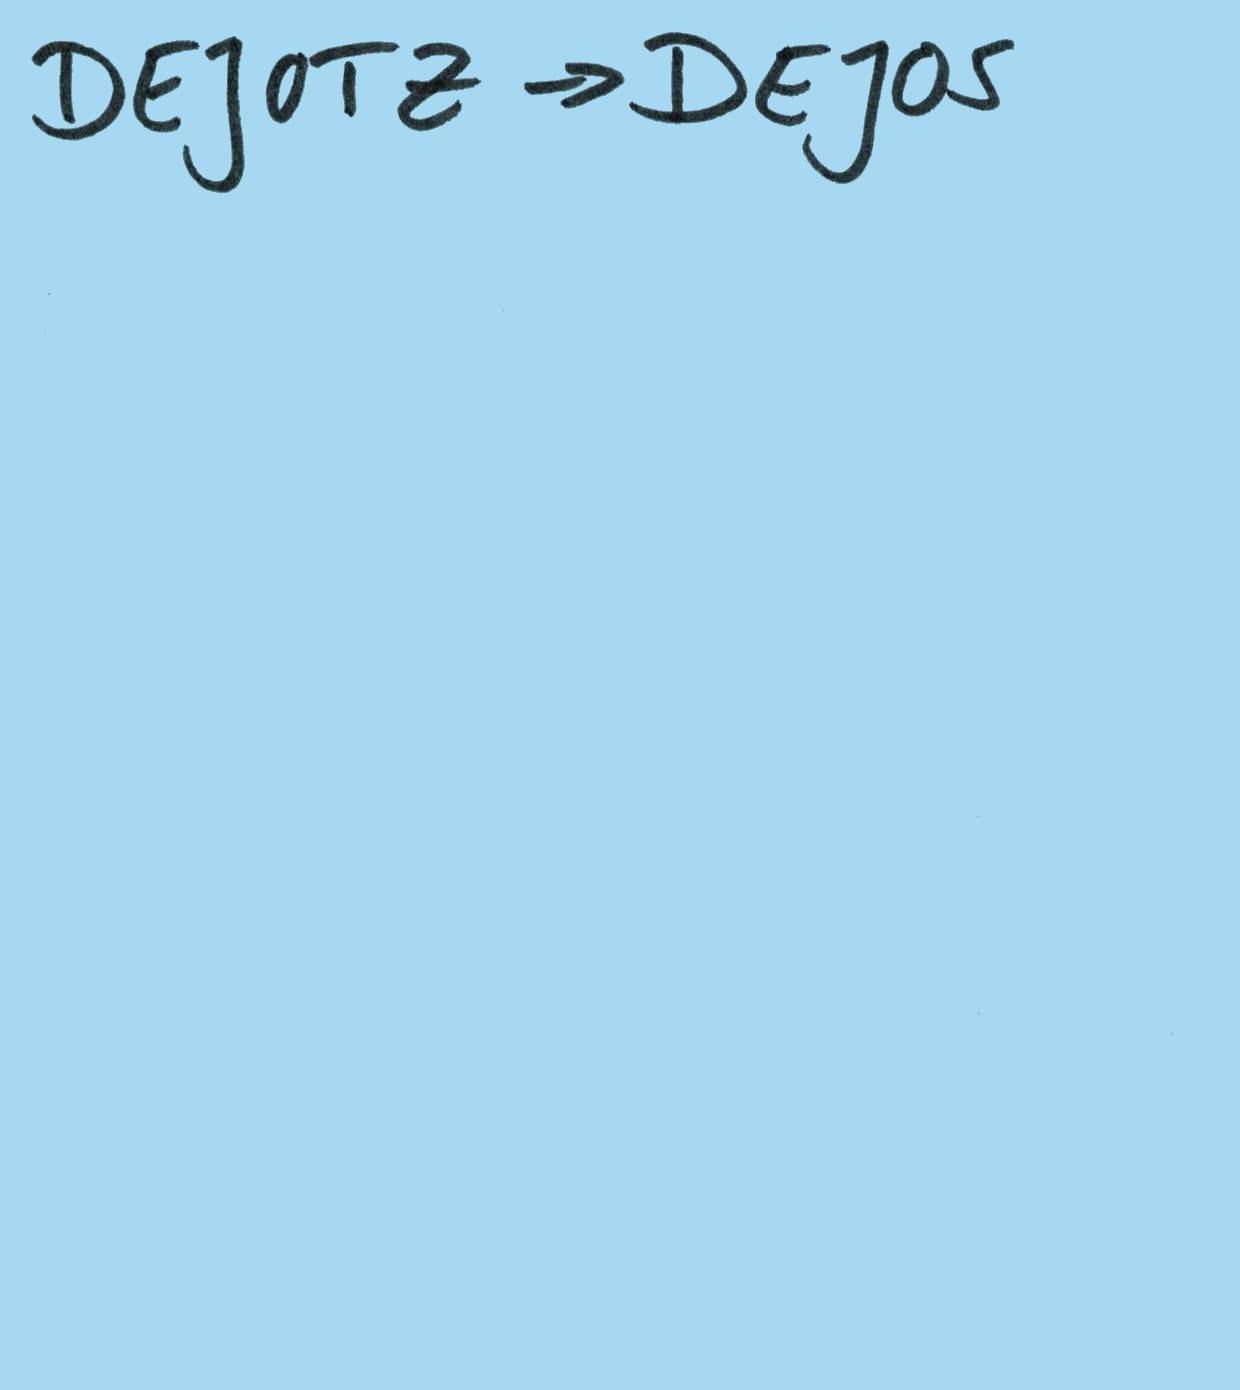 DEJOTZ → DEJOS